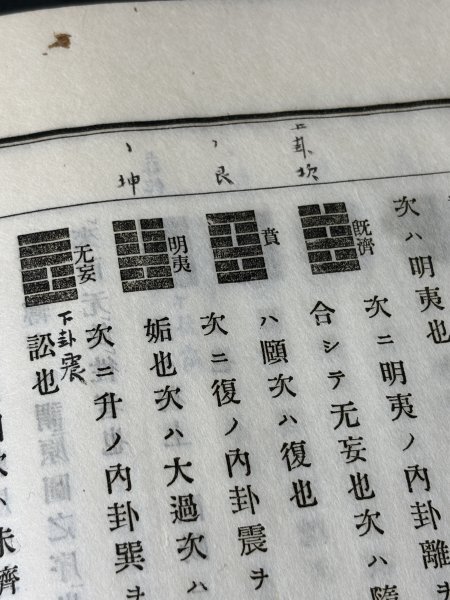 上卦坎
、艮
、坤
次ハ明夷也
次ニ明夷ノ內卦離ヲ
既濟
合シテ无妄也次ハ隨
賁
ハ頤次ハ復也
次ニ復ノ內卦震ヲ
明夷
姤也次ハ大過次ハ
次ニ升ノ內卦巽ヲ
无妄
下卦震
訟也
次ハ未濟